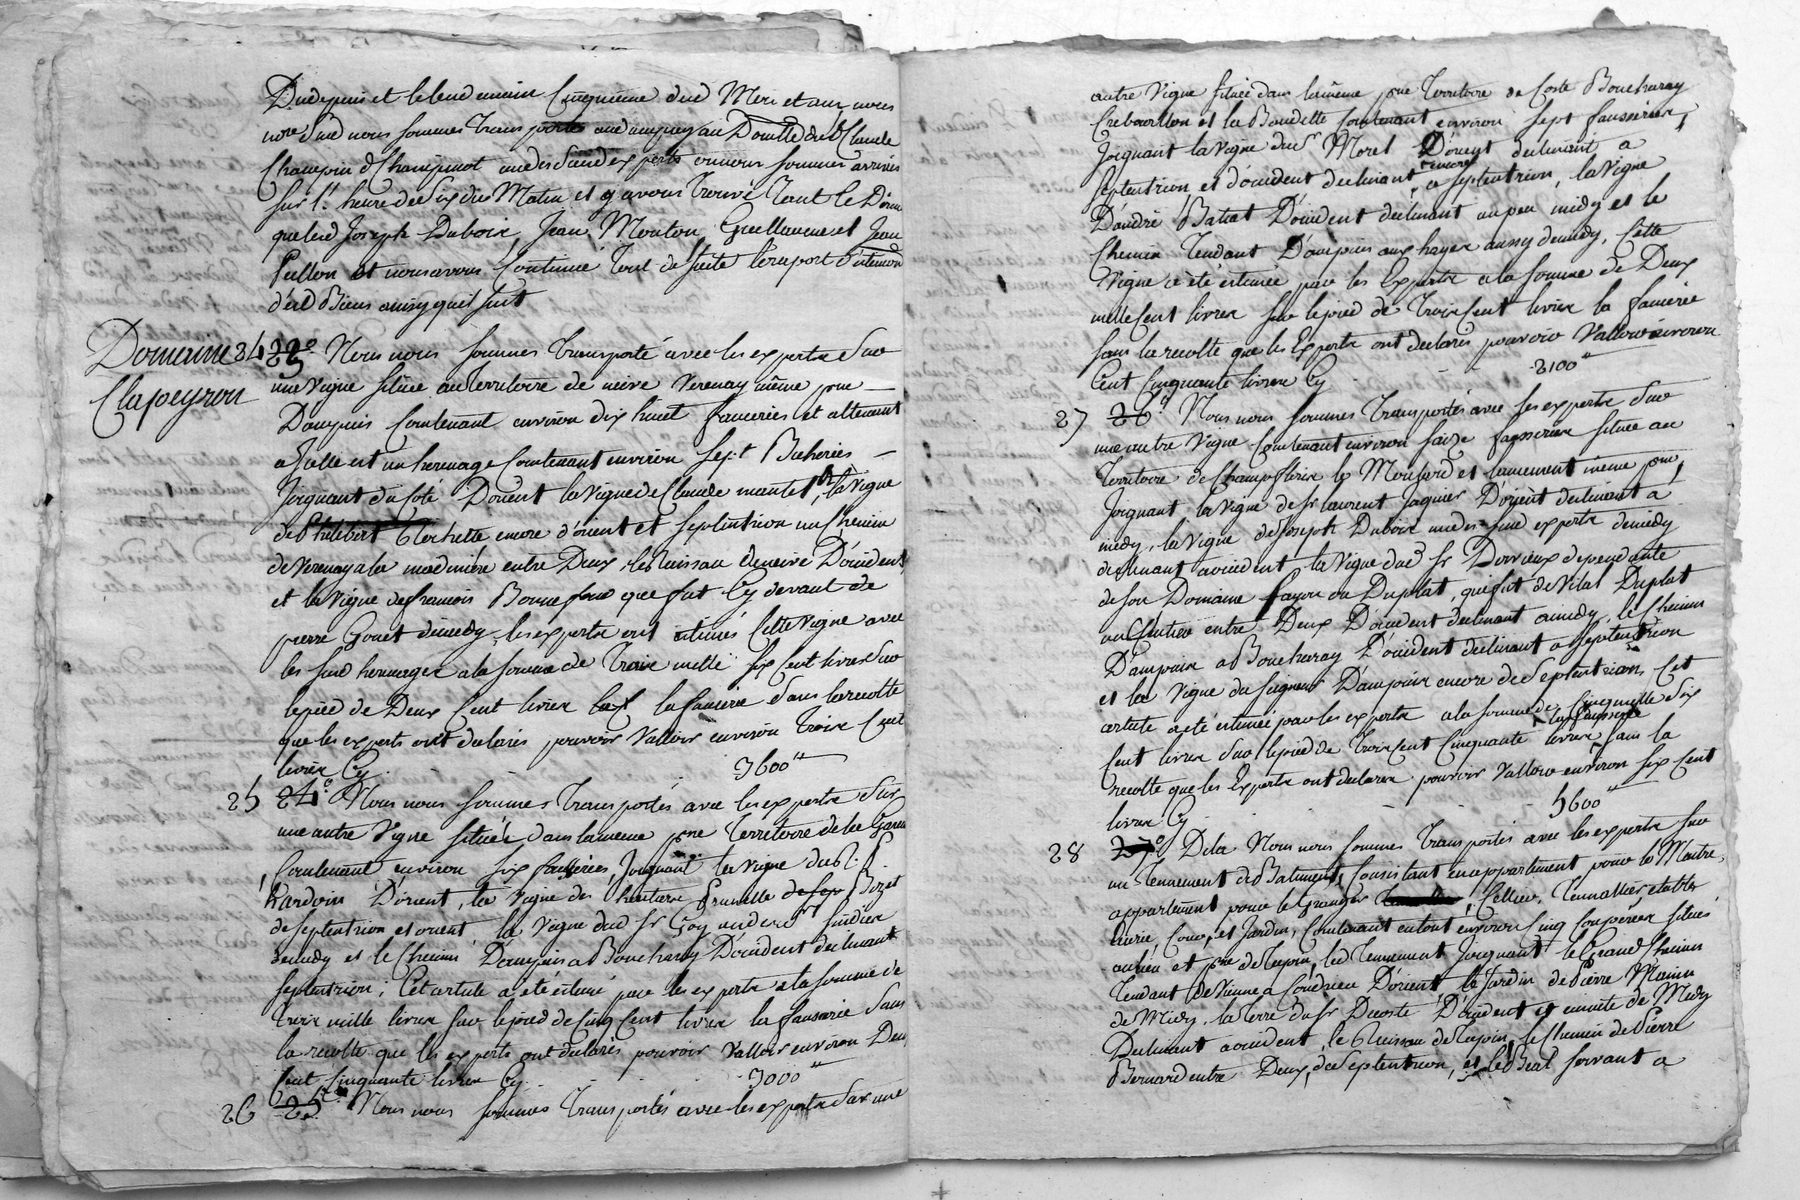 Dudepuis et lelendemain Cinquieme dud Moix et an, nous
no.re dud nous sommes transportés au Domille dud Claude
Champin de Champinot un des Sxpers ou nous sommes arrivés
sur l'heure de six du Matin et y avons trouvé tant le Dom
que led Joseph Duboix, Jean Mouton, Guillaume et Jean
Pullon et nous avons Continué tout de suite le raport
d'esd Biens ainsy quil suit
Domaine
Clapeyron
24 23.º Nous nous sommes transporté avec les experts Sur
une Vigne située au territoire de neive Verenay même pne
Dampuis Contenant environ dix huit fauceries et attenant
a jcelle est un hermage Contenant environ sept Bicheries
Joignant du Coté Dorient la Vigne de Claude mantel la Vigne
de Philibert Clochette encore d'orient et septentrion un Chemin
de Verenay a la madinière entre Deux, le Ruissau de neive D'occident
et la Vigne de francois Bonnefond que fut Cy devant de
pierre Gonet demidy, les experts ont estimés Cette Vigne avec
les sud hermages a la somme de Trois mille six Cent livres Sur
le pied de Deux Cent livres la fauserie Sans la recolte
que les experts ont declarés pouvoir Valloir environ Trois Cent
livres Cy 3600tt
25 24.º Nous nous sommes transportés avec les experts Sur
une autre Vigne située dans la meme pne Territoire de la Garen
Contenant environ six fauseries, Joignant la Vigne du
hardoin D'orient, la Vigne des heritiers Prunelle Bizet
de septentrion et orient la Vigne dud Sr Goy
demidy et le Chemin Dampuis a Boucharey D'occident declinant
septentrion; Cet article a été estimé par les experts a la somme de
trois mille livres sur le pied de Cinq Cent livres la fauserie Sans
la recolte que les experts ont declarés pouvoir Valloir environ Deux
Cent Cinquante livres Cy 3000tt
26 25.º Nous nous sommes transportés avec les experts Sur une
autre Vigne située dans la même pne Territoire de Coste Boucharey
Crebouillon et la Baudette Contenant environ sept fauseries,
Joignant la Vigne du Sr Morel D'orient declinant a
septentrion et d'occident declinant encore a septentrion, la Vigne
D'andré Batrat D'occident declinant un peu midy et le
Chemin tendant Dampuis aux hayes aussy demidy, Cette
Vigne a été estimée par les Experts a la somme de Deux
mille Cent livres sur le pied de Trois Cent livres la fauserie
sans la recolte que les Experts ont declarés pouvoir Valloir environ
Cent Cinquante livres Cy 2100tt
27 26.º Nous nous sommes transportés avec les experts Sur
une autre Vigne Contenant environ saize fausseries située au
Territoire de Champflerie le Mouard et lancement même pne
Joignant la Vigne de Sr laurent Jaquier D'orient declinant a
midy, la Vigne de Joseph Duboix un des sud experts demidy
declinant a occident la Vigne dud Sr Dorvieux dependante
de son Domaine fayon ou Duplat, qui fut de Vital Duplat
un Sentier entre Deux D'occident declinant a midy, le Chemin
D'ampuis a Boucharey D'occident declinant a septentrion
et la Vigne du seigneur D'ampuis encore de Septentrion, Cet
article a été estimé par les experts a la somme de Cinq mille six
Cent livres Sur le pied de Trois Cent Cinquante livres la fausserie sans la
recolte que les Experts ont declarés pouvoir Valloir environ six Cent
livres Cy 5600tt
28 27.º Dela Nous nous sommes transportés avec les experts Sur
un tennement de Batiment, Consistant en appartement pour le Maitre,
appartement pour le Granger, Cellier, Tinallier, etables
Curie, Cour, et Jardin, Contenant en tout environ Cinq Couperées situés
au lieu et pne de Tupin, led tennement Joignant le Grand Chemin
tendant de Vienne a Condrieu D'orient le Jardin de Pierre Manin
de Midy, la terre du Sr Decoste D'occident et ensuite de Midy
Declinant a occident, le Ruissau de Tupin, le Chemin de Pierre
Bernard entre Deux, de Septentrion, et le Béal servant a